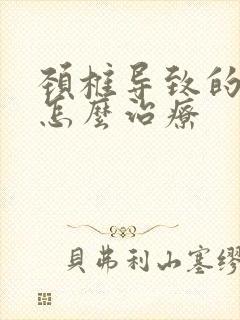 颈椎导致的
怎麼治療
貝弗利山塞缪